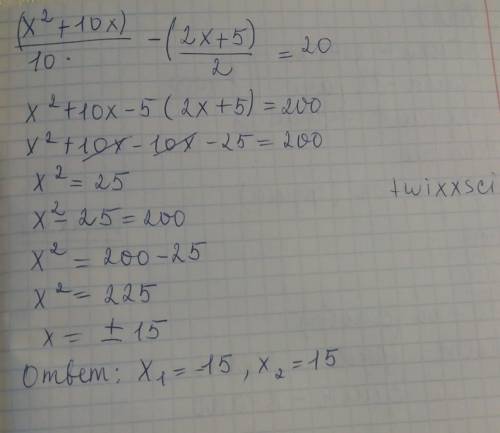 (x² + 10x)/10 - (2x+5)/2 = 20
x² + 10x - 5 (2x+5) = 200
x² + 10x - 10x - 25 = 200
x² = 25
x² - 25 = 200
x² = 200 - 25
x² = 225
x = ± 15
Ответ: x₁ = -15, x₂ = 15
twixxsci